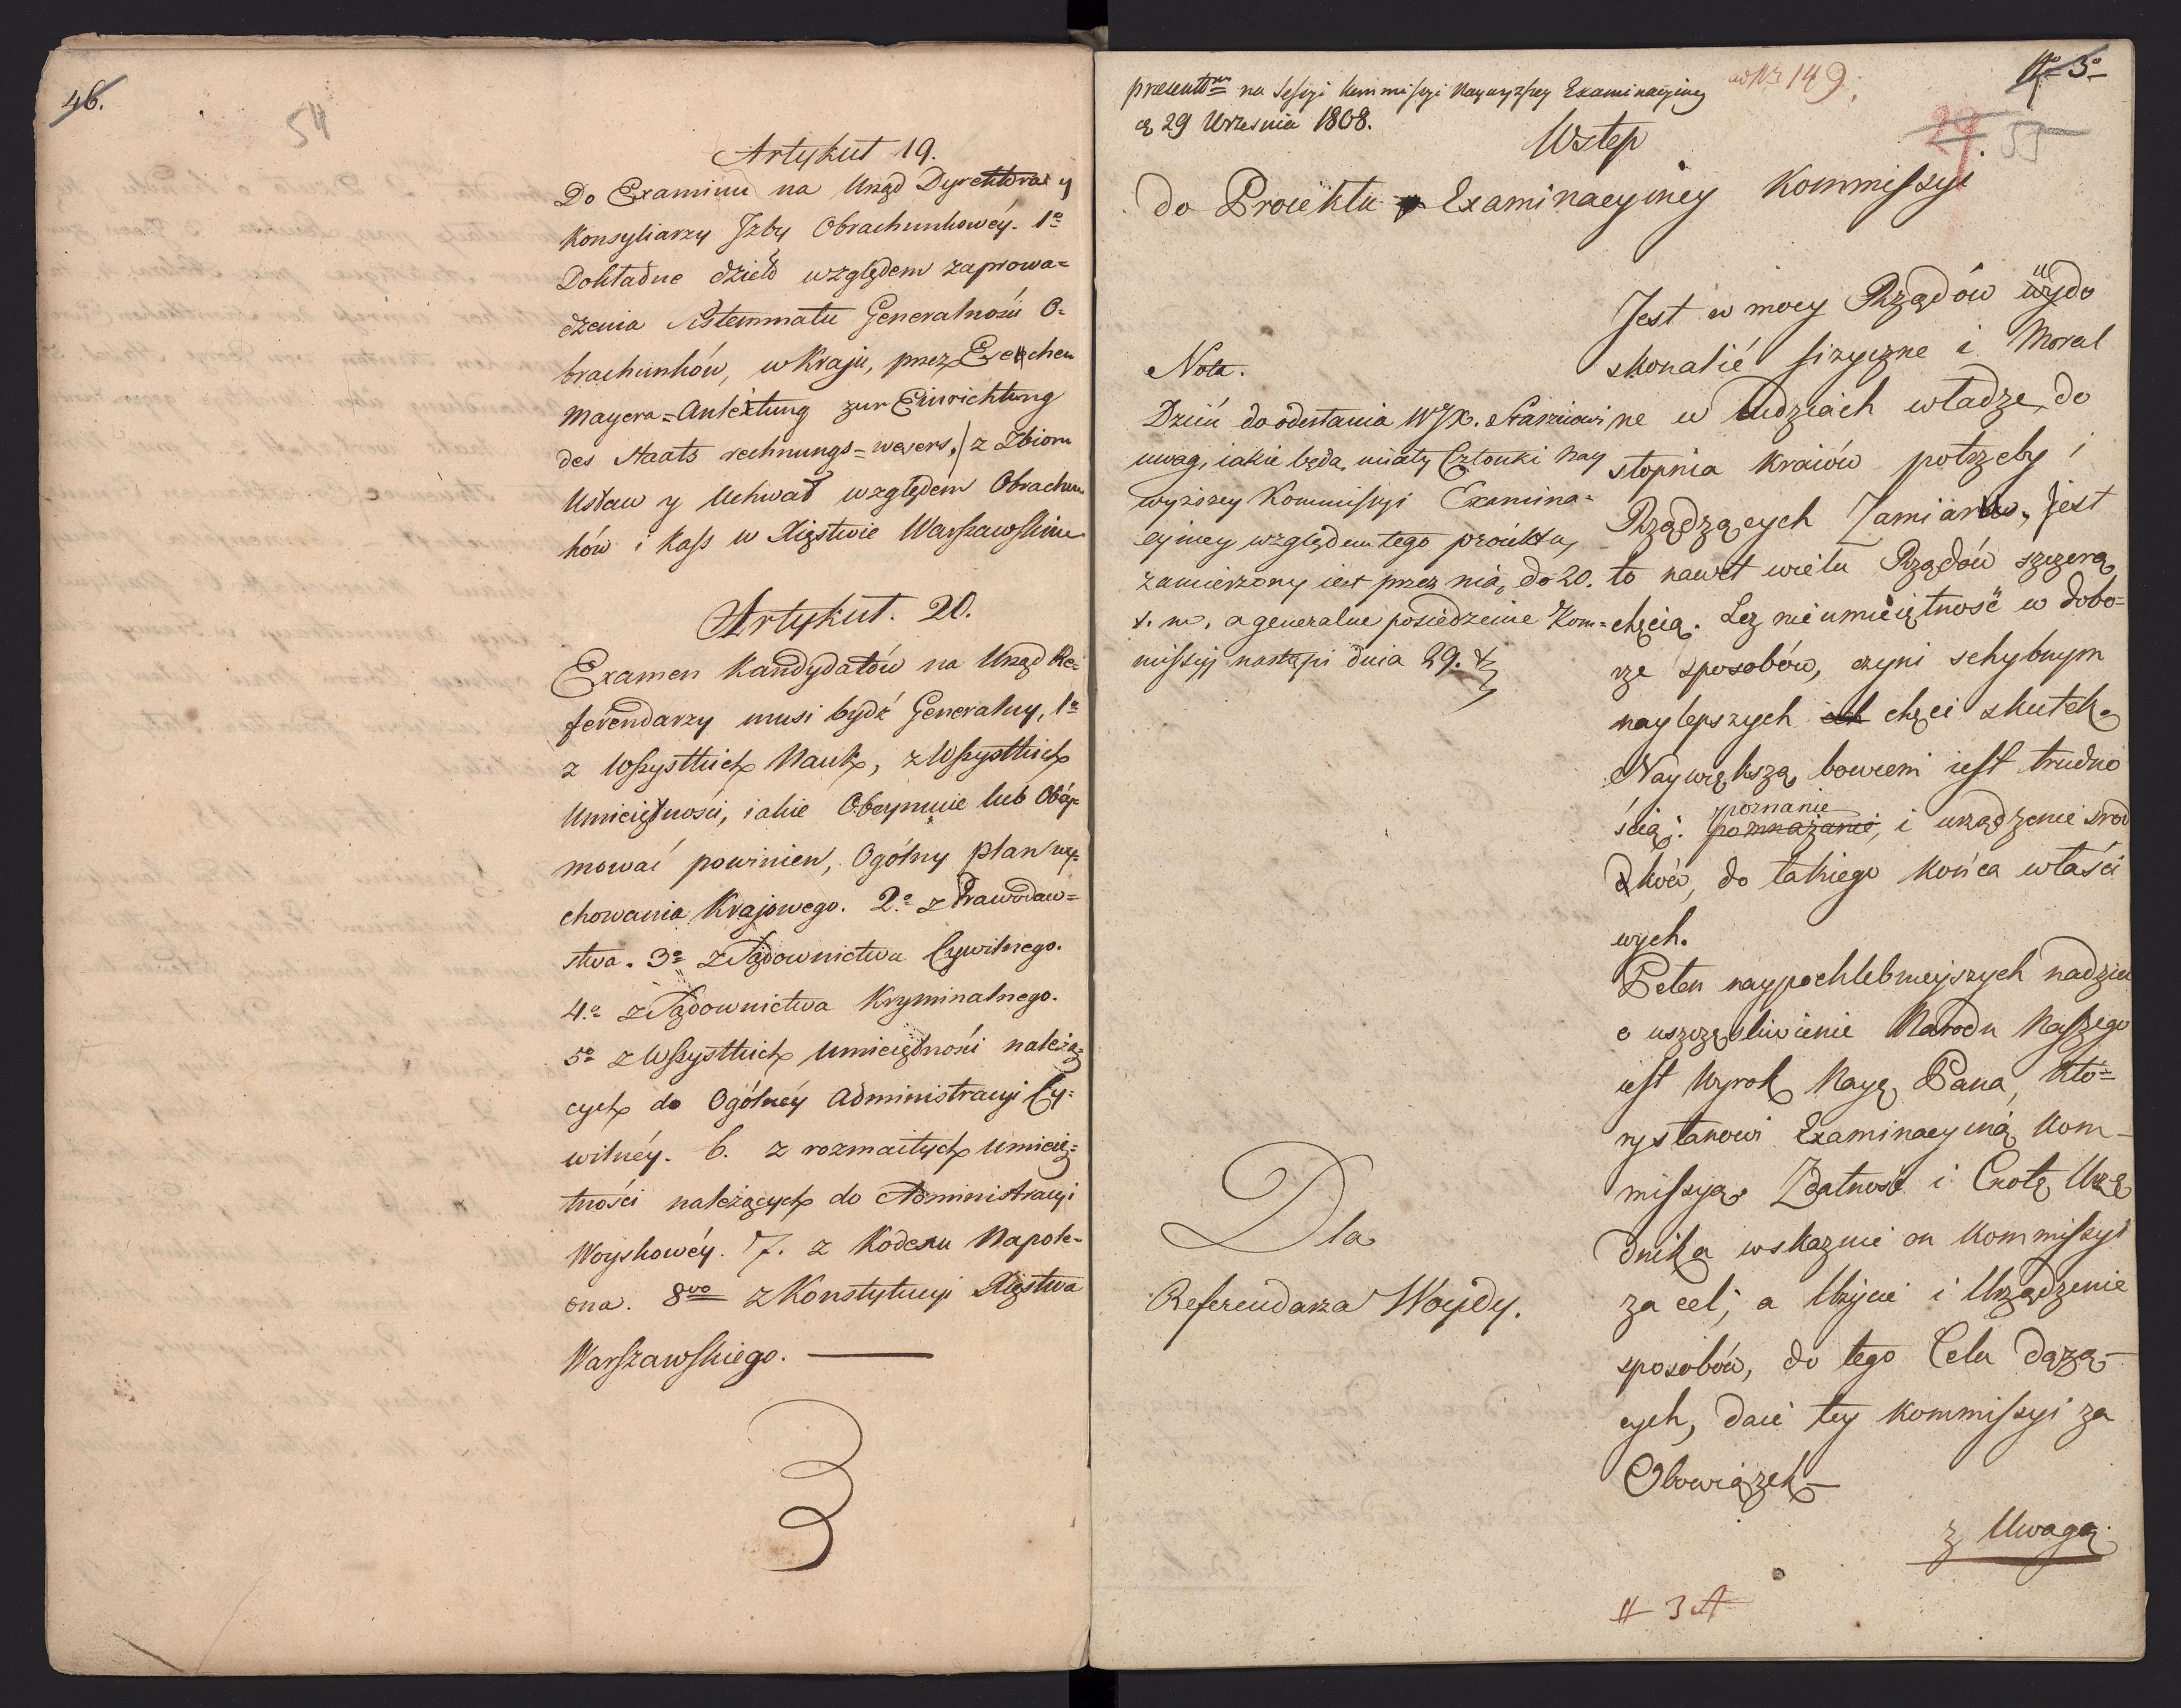 46.
54
Artykuł 19.
Do Examinu na Urząd Dyrektora y
Konsyliarzy Jzby Obrachunkowéy. 1o
Dokładne dzieło względem zaprowa=
dzenia Sistemmatu Generalności O=
brachunków, w Kraju, przez Eschen
Mayera = Anleitung zur Einrichtung
des Staats rechnungs = wesens, / z Zbioru
Ustaw y Uchwał względem Obrachun
ków i Kass w Xięstwie Warszawskim
Artykuł. 20.
Examen Kandydatów na Urząd Re=
ferendarzy musi bydź Generalny, 1o
z Wszystkich Nauk, z Wszystkich
Umieiętności, iakie Obeymuie lub Obéy=
mować powinien, Ogólny plan wy=
chowania Krajowego. 2o z Prawodaw=
stwa. 3o z Sądownictwa Cywilnego.
4o z Sądownictwa Kryminalnego.
5o z Wszystkich Umieiętności należą=
cych do Ogólnéy Administracyi Cy=
wilnéy. 6. z rozmaitych Umieię=
tności należących do Administracyi
Woyskowéy. 7. z Kodexu Napole=
ona. 8vo z Konstytucyi Xięstwa
Warszawskiego. —
3
praesentm na Sessyi Kommissyi Naywyższey Examinacyiney
d. 29 Września 1808.
ad No 149.
No 3o
29
55
Wstęp
do Proiektu Examinacyiney Kommissyi
Nota.
Dzień do odesłania WJX. Staszicowi
uwag, iakie będą miały Członki Nay
wyższey Kommissyi Examina=
cyiney względem tego proiektu,
zamierzony iest przez nią, do 20.
t. m. a generalne posiedzenie Kom=
missyi nastąpi dnia 29.
Dla
Referendarza Woydy.
Jest w mocy Rządów udo
skonalić fizyczne i Moral
ne w ludziach władze, do
stopnia kraiów potrzeby i
Rządzących Zamiarów. Jest
to nawet wielu Rządów szczerą
chęcią. Lez nieumieiętność w dobo=
rze sposobów, czyni schybnym
naylepszych ich chęci skutek.
Naywiększą bowiem iest trudno
ścią: pomnażanie poznanie, i urządzenie środ
ków, do takiego końca właści
wych.
Pełen naypochlebnieyszych nadziei
o uszczęśliwienie Narodu Naszego
iest Wyrok Nayę Pana, Kto=
ry stanowi Examinacyiną Kom-
missyą. Zdatność i Cnotę Urzę
dnika wskazuie on Kommissyi
za cel; a Użycie i Urządzenie
sposobów, do tego Celu dążą-
cych, daie tey Kommissyi za
Obowiązek —
z Uwagą
# 3 A